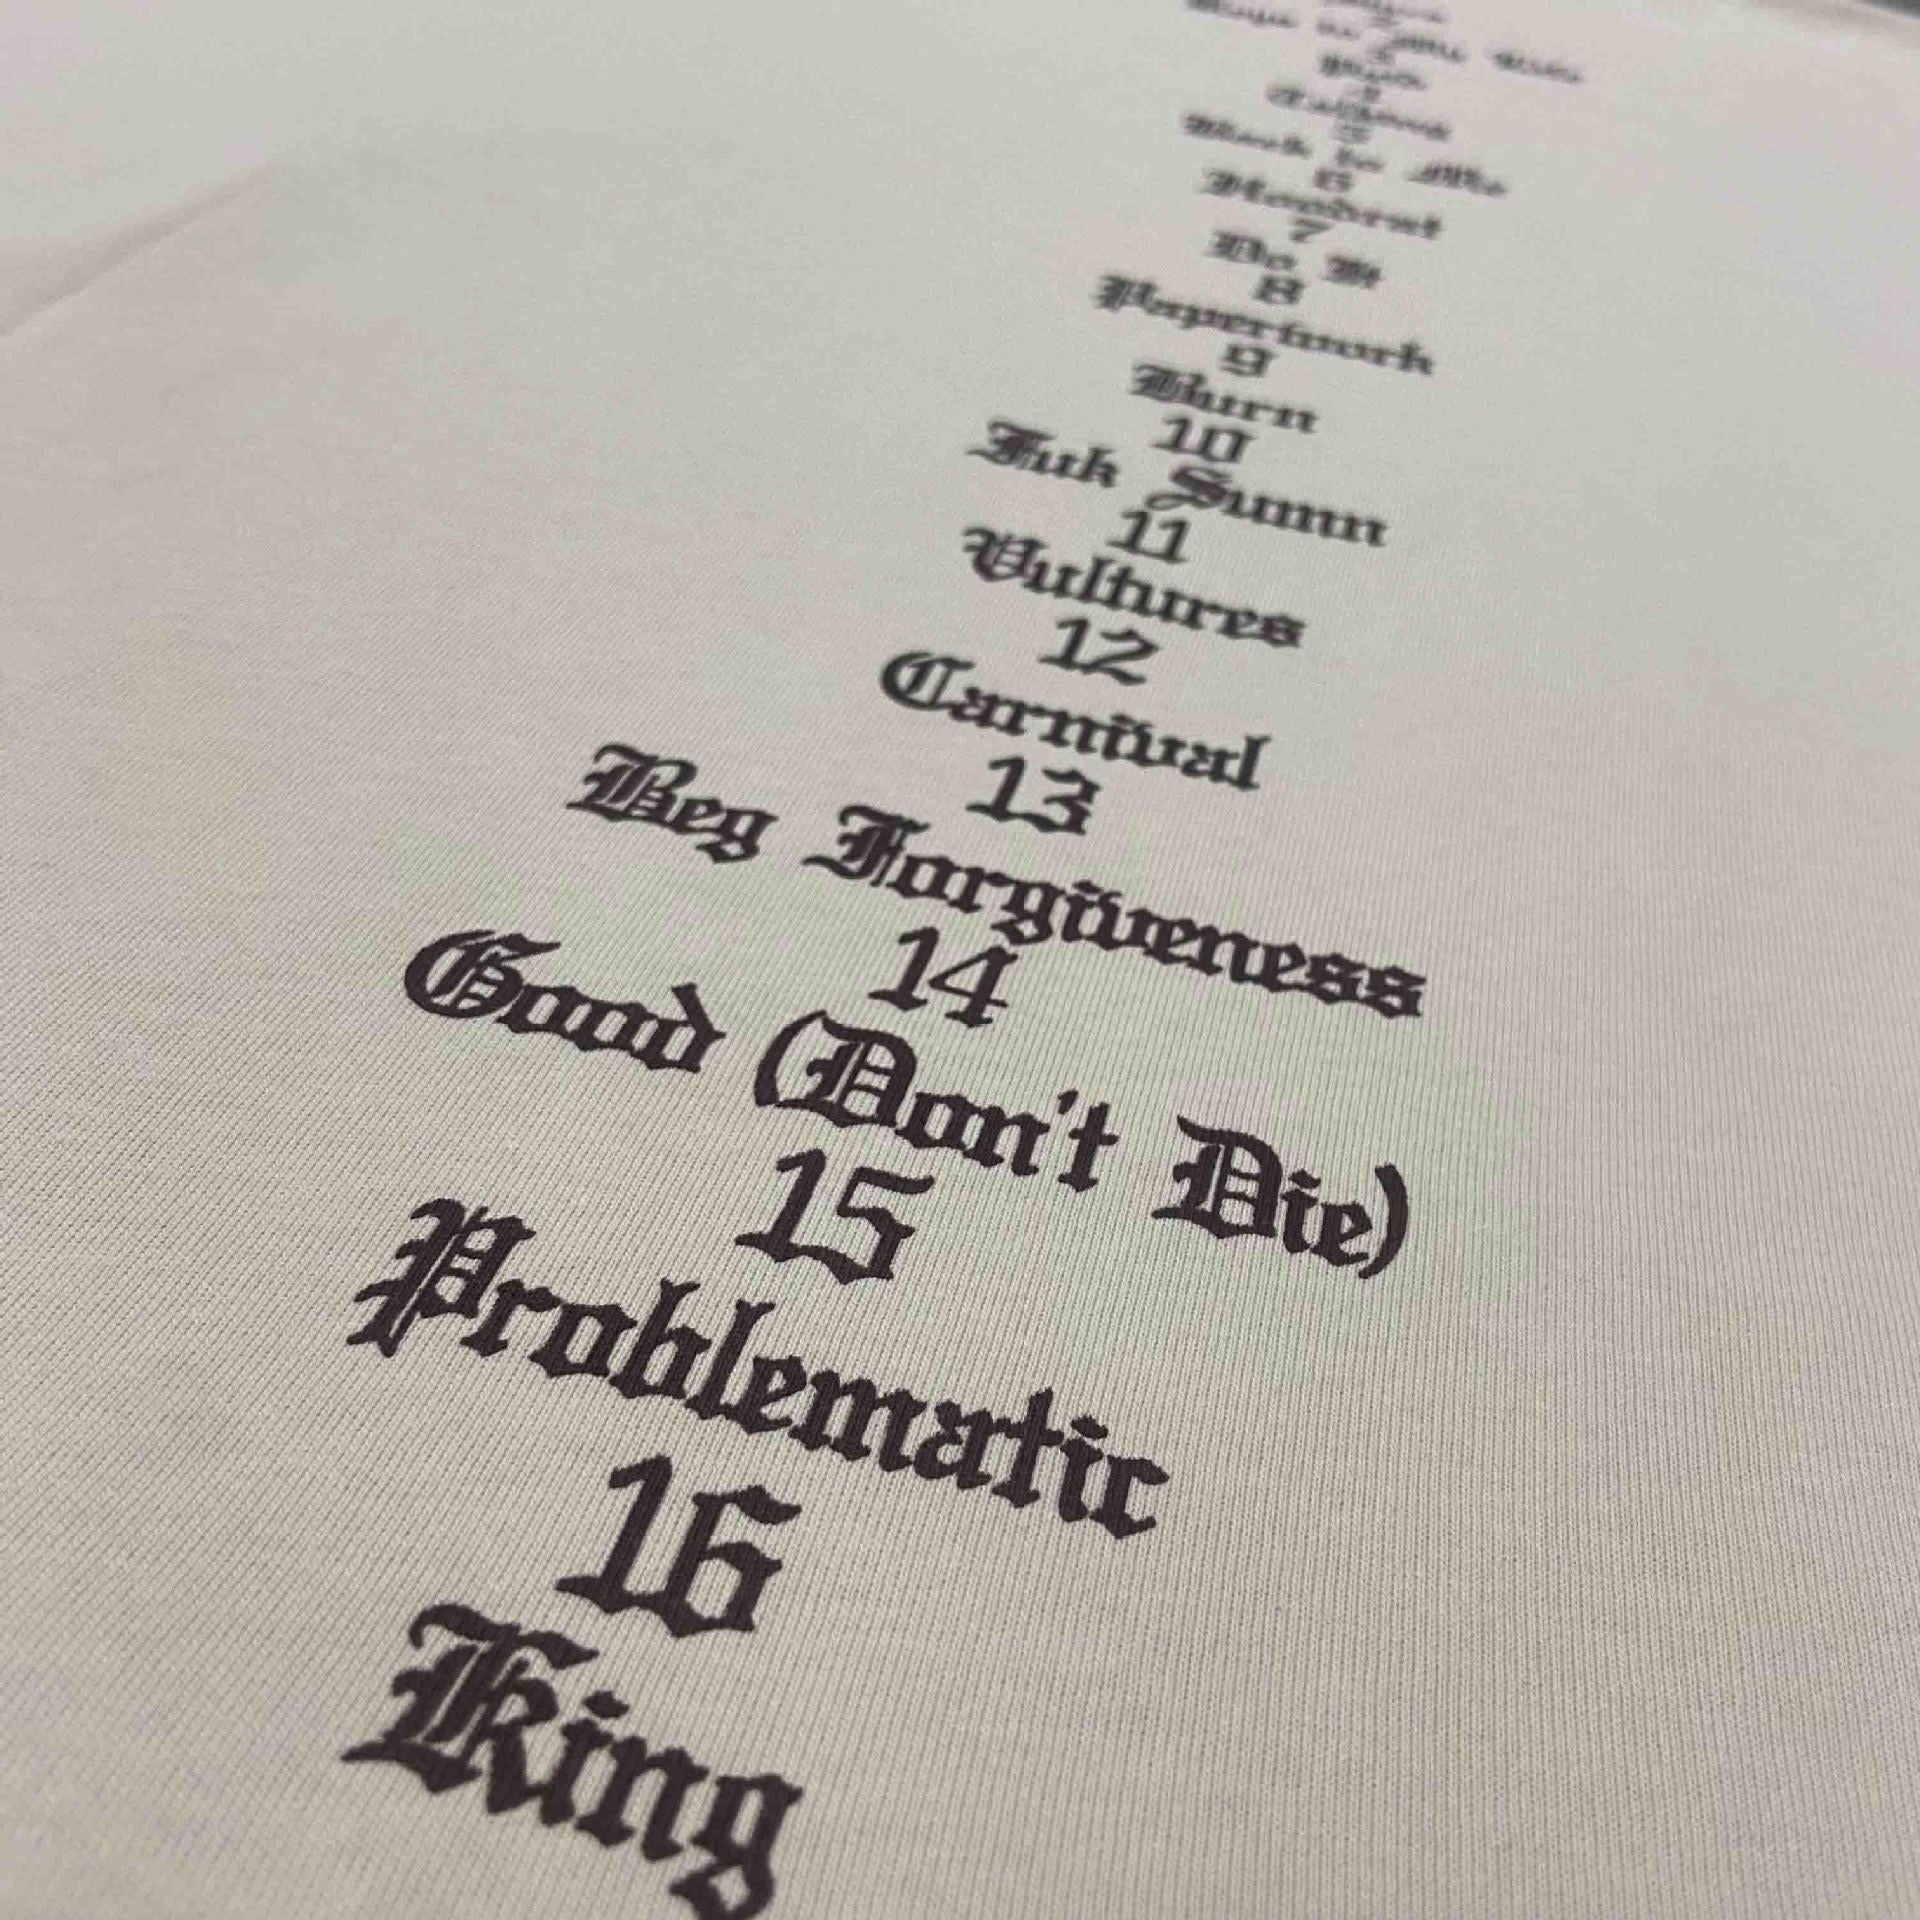 5
Back to Me
6
Hoodrat
7
Do It
8
Paperwork
9
Burn
10
Fuk Sumn
11
Vultures
12
Carnival
13
Beg Forgiveness
14
Good (Don't Die)
15
Problematic
16
King